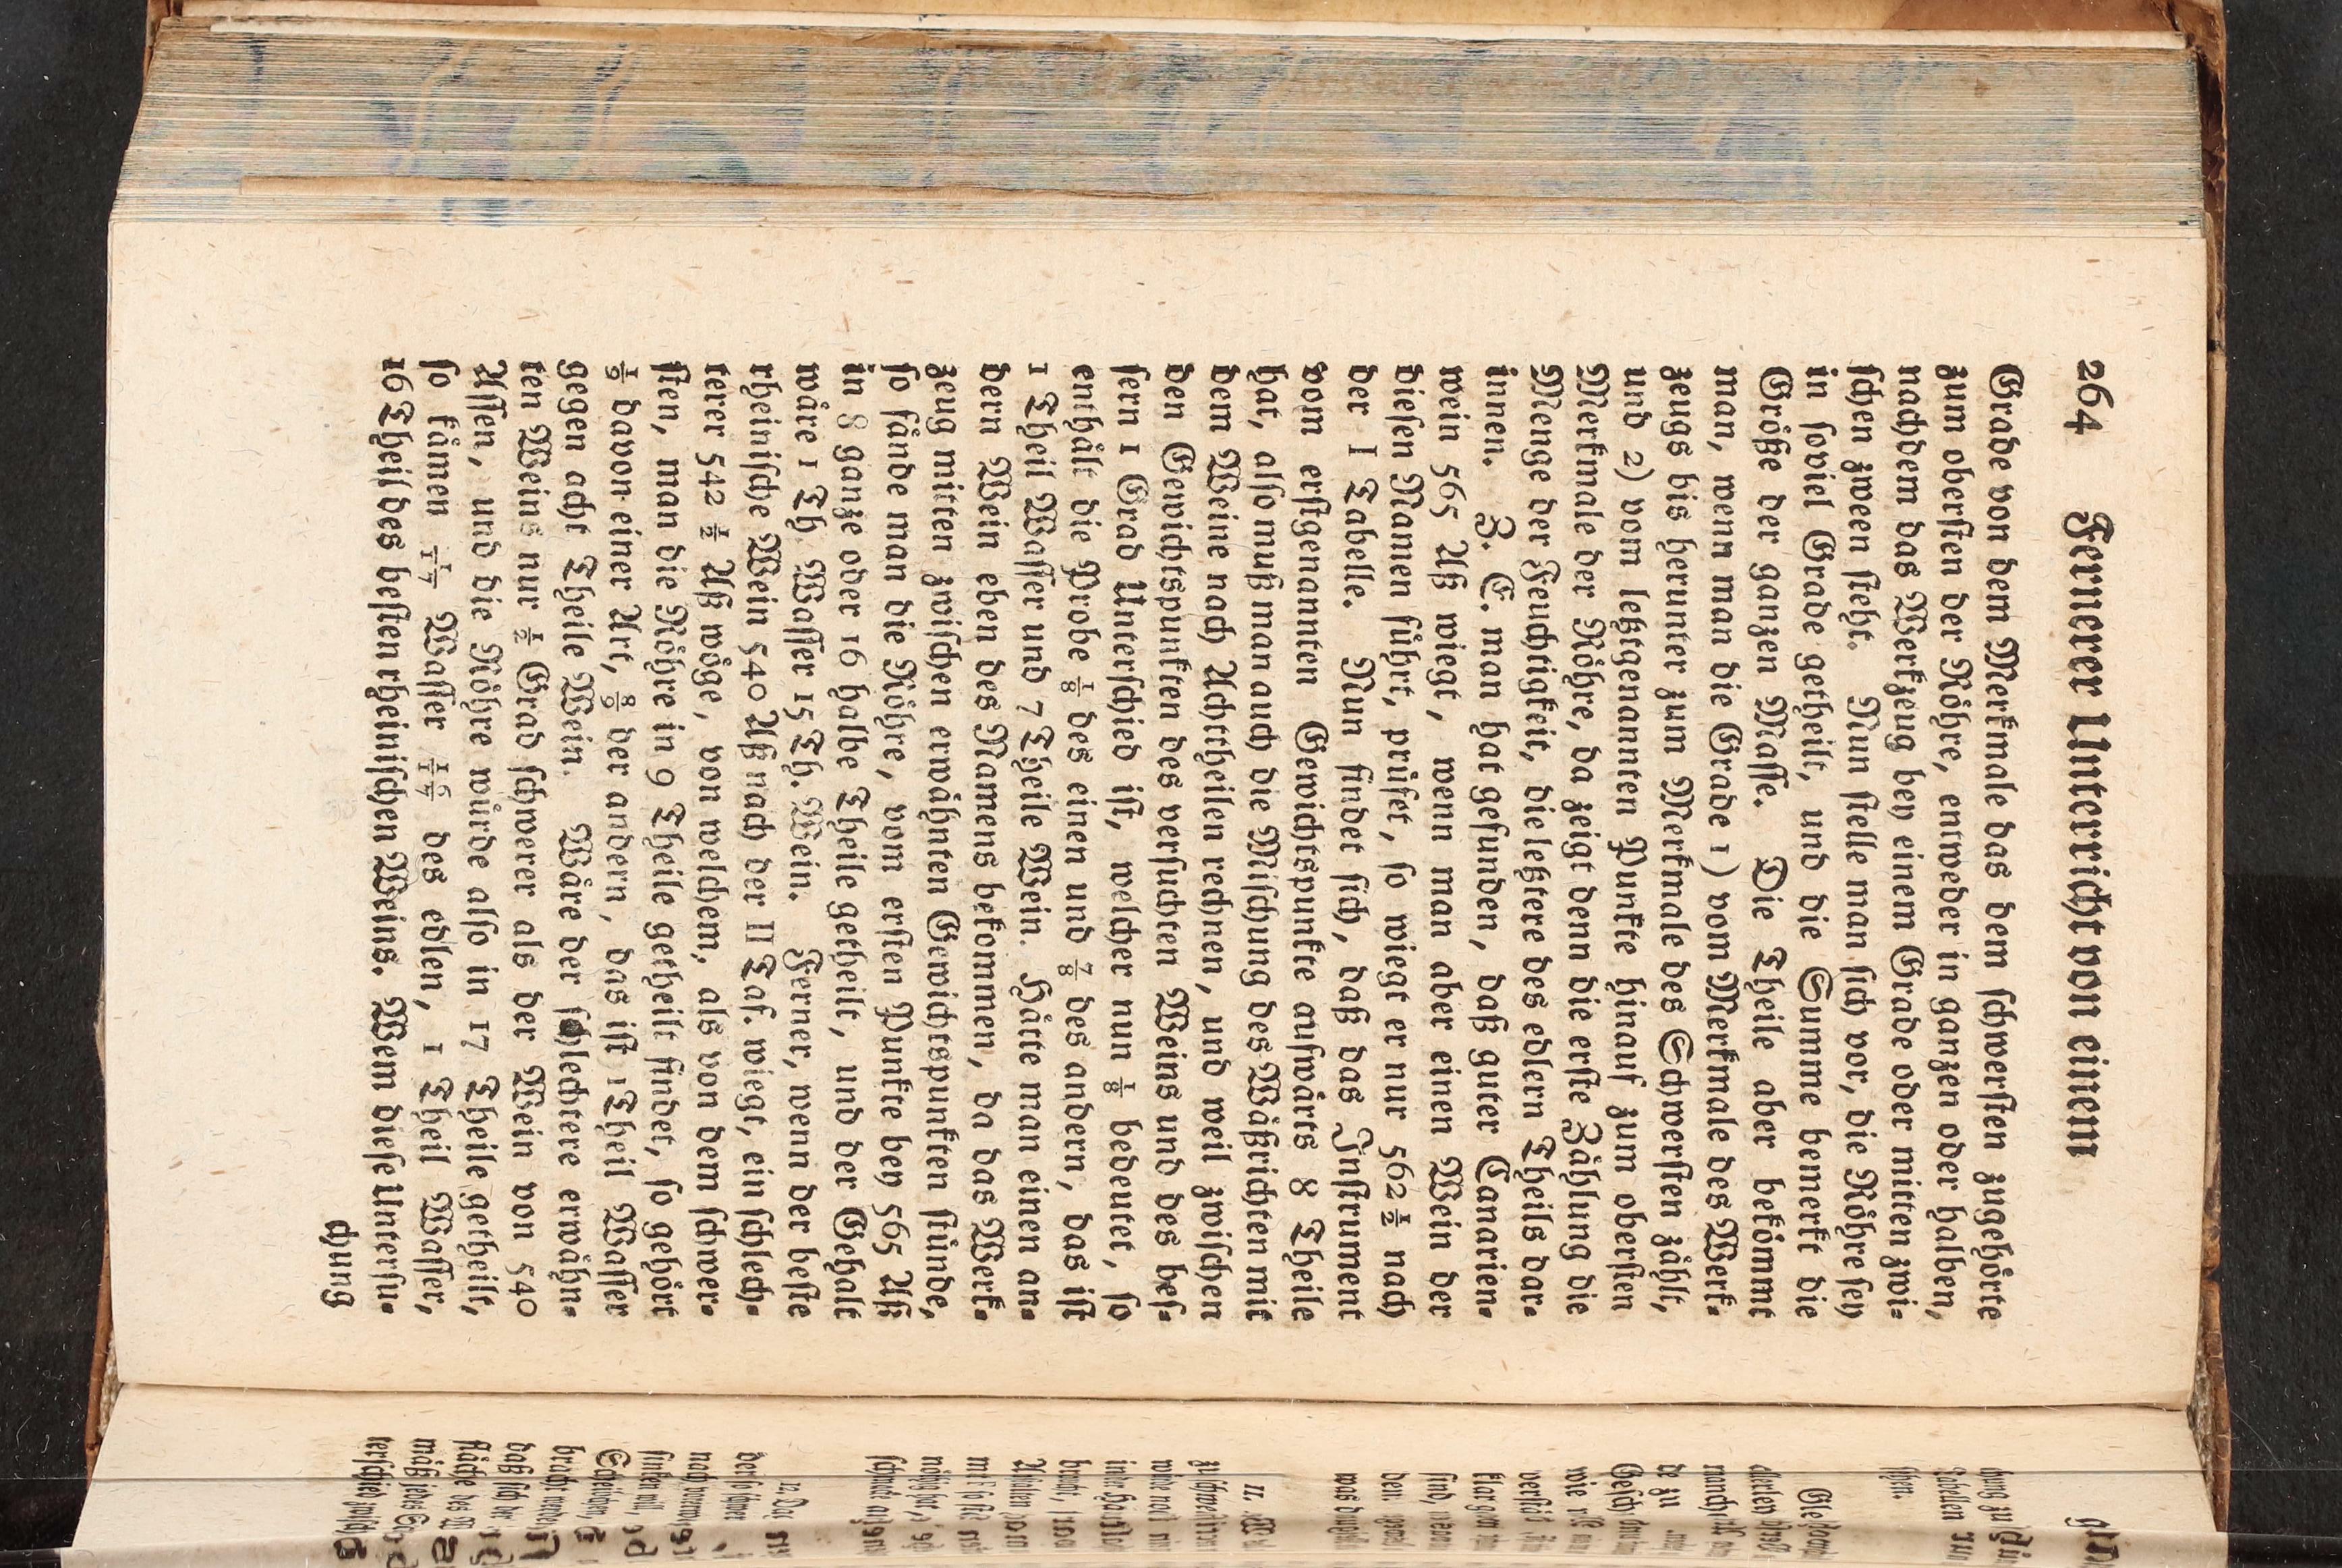 264 Fernerer Unterricht von einem
Grade von dem Merkmale das dem schwersten zugehörte
zum obersten der Röhre, entweder in ganzen oder halben,
nachdem das Werkzeug bey einem Grade oder mitten zwi-
schen zween steht. Nun stelle man sich vor, die Röhre sey
in soviel Grade getheilt, und die Summe bemerkt die
Größe der ganzen Masse. Die Theile aber bekömmt
man, wenn man die Grade 1) vom Merkmale des Werk-
zeugs bis herunter zum Merkmale des Schwersten zählt,
und 2) vom letztgenannten Punkte hinauf zum obersten
Merkmale der Röhre, da zeigt denn die erste Zählung die
Menge der Feuchtigkeit, die letztere des edlern Theils dar-
innen. Z. E. man hat gefunden, daß guter Canarien-
wein 565 Aß wiegt, wenn man aber einen Wein der
diesen Namen führt, prüfet, so wiegt er nur 562½ nach
der I Tabelle. Nun findet sich, daß das Instrument
vom erstgenannten Gewichtspunkte aufwärts 8 Theile
hat, also muß man auch die Mischung des Wäßrichten mit
dem Weine nach Achttheilen rechnen, und weil zwischen
den Gewichtspunkten des versuchten Weins und des bes-
sern 1 Grad Unterschied ist, welcher nun ⅛ bedeutet, so
enthält die Probe ⅛ des einen und ⅞ des andern, das ist
1 Theil Wasser und 7 Theile Wein. Hätte man einen an-
dern Wein eben des Namens bekommen, da das Werk-
zeug mitten zwischen erwähnten Gewichtspunkten stünde,
so fände man die Röhre, vom ersten Punkte bey 565 Aß
in 8 ganze oder 16 halbe Theile getheilt, und der Gehalt
wäre 1 Th Wasser 15 Th. Wein. Ferner, wenn der beste
rheinische Wein 540 Aß nach der II Taf. wiegt, ein schlech-
terer 542½ Aß wöge, von welchem, als von dem schwer-
sten, man die Röhre in 9 Theile getheilt findet, so gehört
1/9 davon einer Art, 8/9 der andern, das ist 1 Theil Wasser
gegen acht Theile Wein. Wäre der schlechtere erwähn-
ten Weins nur ½ Grad schwerer als der Wein von 540
Assen, und die Röhre würde also in 17 Theile getheilt,
so kämen 1/17 Wasser 16/17 des edlen, 1 Theil Wasser,
16 Theil des besten rheinischen Weins. Wem diese Untersu-
chung